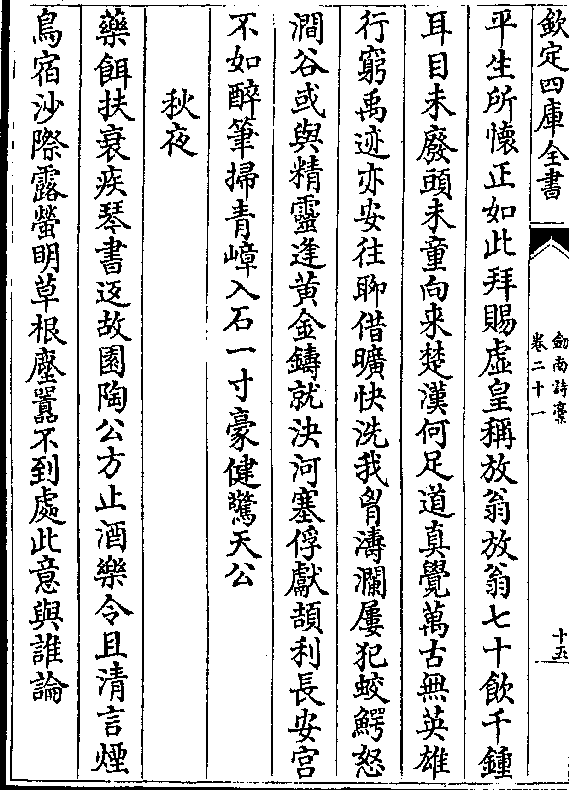 欽定四庫全書
劒南詩稾
卷二十一
十五
平生所懷正如此拜賜虛皇稱放翁放翁七十飲千鍾
耳目未廢頭未童向来楚漢何足道真覺萬古無英雄
行窮禹迹亦安往聊借曠快洗我胷濤瀾屢犯蛟鰐怒
澗谷或與精靈逢黃金鑄就決河塞俘獻頡利長安宫
不如醉筆掃青嶂入石一寸豪健驚天公
秋夜
藥餌扶衰疾琴書返故園陶公方止酒樂令且清言煙
鳥宿沙際露螢明草根塵囂不到處此意與誰論